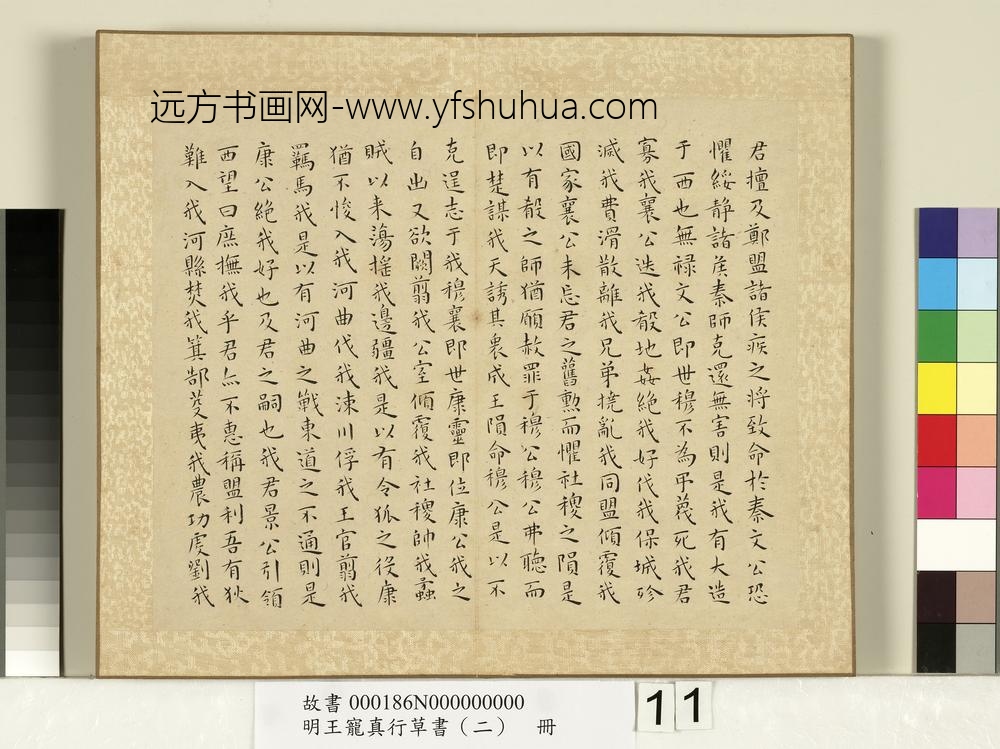 远方书画网-www.yfshuhua.com
君擅及鄭盟諸侯疾之將致命於秦文公恐
懼綏静諸矦秦師克還無害則是我有大造
于西也無禄文公即世穆不為弔蔑死我君
寡我襄公迭我殽地奸絶我好伐我保城殄
滅我費滑散離我兄弟撓亂我同盟傾覆我
國家襄公未忘君之舊勲而懼社稷之隕是
以有殽之師猶願赦罪于穆公穆公弗聽而
即楚謀我天誘其衷成王隕命穆公是以不
克逞志于我穆襄即世康靈即位康公我之
自出又欲闕翦我公室傾覆我社稷帥我蟊
賊以来蕩揺我邊疆我是以有令狐之役康
猶不悛入我河曲伐我涑川俘我王官翦我
羈馬我是以有河曲之戰東道之不通則是
康公絶我好也及君之嗣也我君景公引領
西望曰庶撫我乎君亦不惠稱盟利吾有狄
難入我河縣焚我箕郜芟夷我農功虔劉我
故書 000186N000000000
明王寵真行草書（二） 冊
11